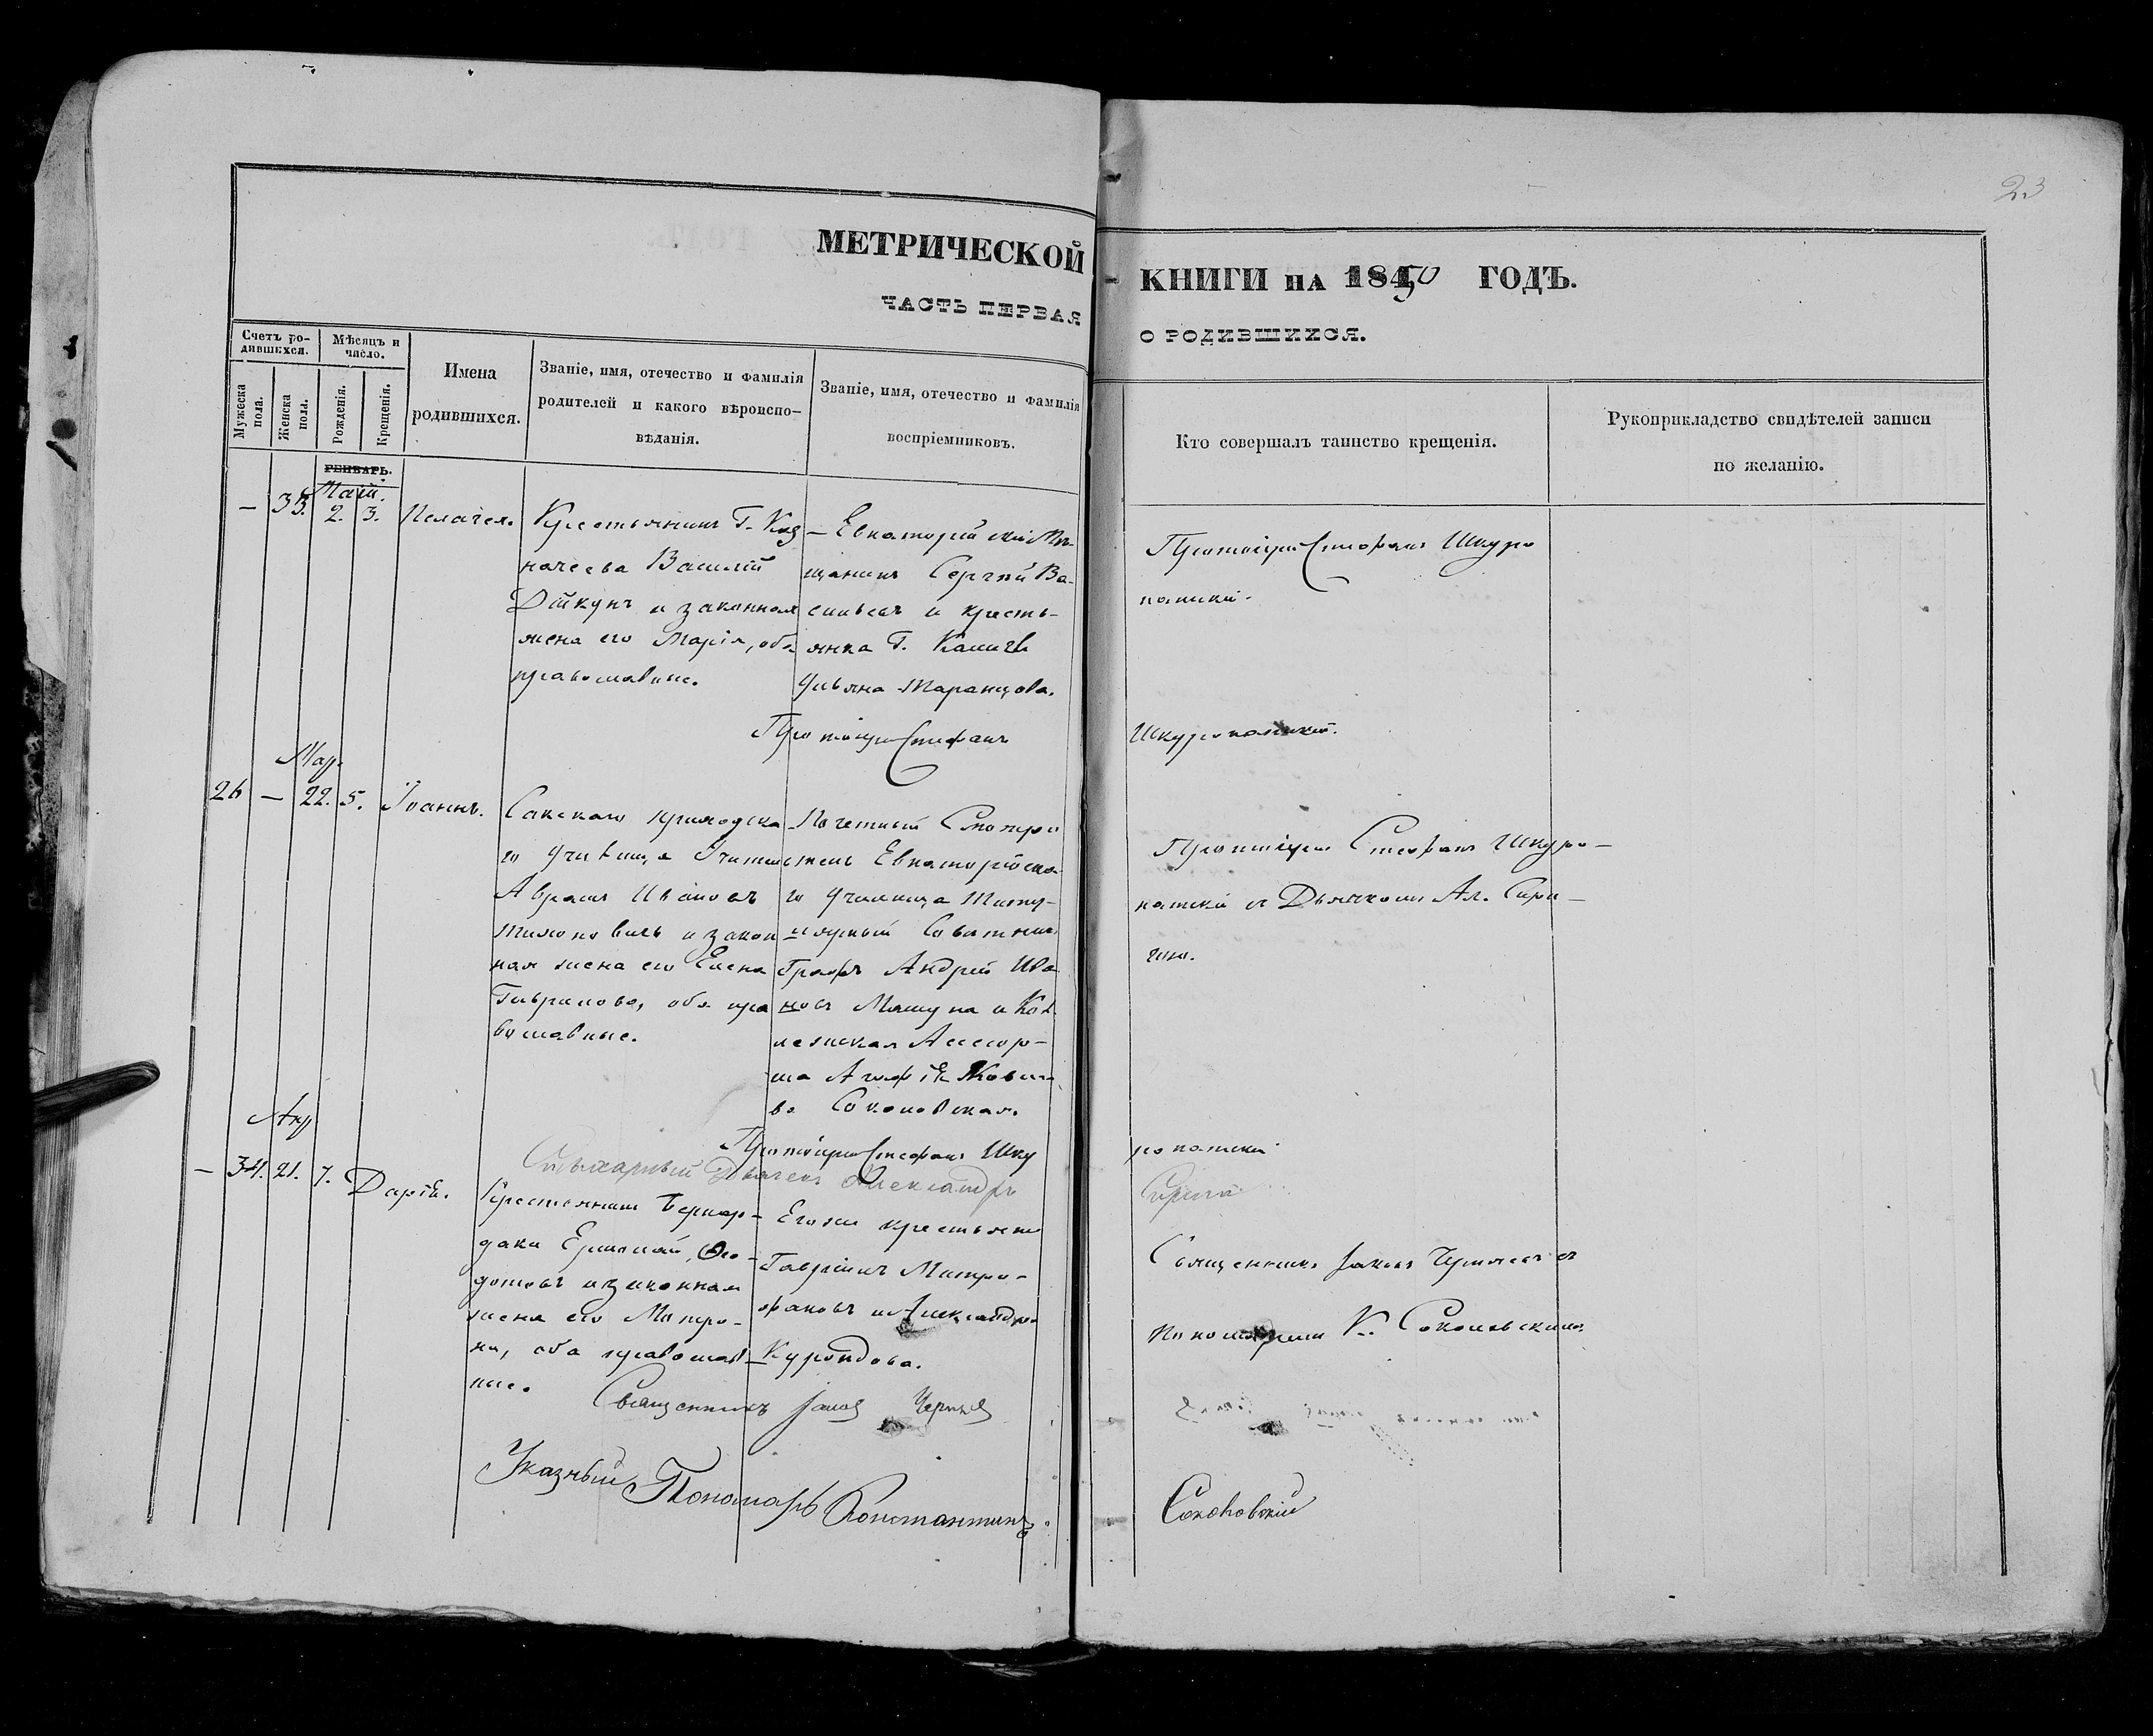 23
МЕТРИЧЕСКОЙ КНИГИ НА 1850 ГОДЪ.
ЧАСТЬ ПЕРВАЯ О РОДИВШИХСЯ.
Счетъ родившихся.
Мужеска пола.
Женска пола.
Мѣсяцъ и число.
Рожденія.
Крещенія.
Имена родившихся.
Званіе, имя, отечество и фамилія родителей и какого вѣроисповѣданія.
Званіе, имя, отечество и фамилія воспріемниковъ.
Кто совершалъ таинство крещенія.
Рукоприкладство свидѣтелей записи по желанію.
ГЕНВАРЬ.
Маій.
— 33. 2. 3. Пелагея.
Крестьянинъ Г. Каз
начеева Василій
Дайкунъ и законная
жена его Марія, оба
православные.
Евпаторійскій Мѣ-
щанинъ Сергѣй Ва-
сильевъ и кресть-
янка Г.
Ульяна Маранцова.
Протоіерей Стефанъ Шкуро
патскій.
Протоіерей Стефанъ
Шкуропатскій.
Мар.
26 — 22. 5. Іоаннъ.
Сакскаго приходска
го Училища Учитель
Аврамъ Ивановъ
и закон
ная жена его Елена
Гаврилова, оба пра
вославные.
Почетный Смотри
тель Евпаторійска
го Училища Титу-
лярный Совѣтникъ
Графъ Андрей Ива
новъ Мамуна и Кол
лежская Ассесор-
ша
ва Соколовская.
Протоіерей Стефанъ Шкуро-
патскій съ Дьячкомъ Ал. Сири-
Протоіерей Стефанъ Шку
ропатскій
Стихарный Дьячекъ Александръ
Апр
— 34. 21. 7. Дарія.
Крестьянинъ Бернар-
даки Ермолай Ѳео-
дотовъ и законная
жена его Матро-
на, оба православ
ные.
Егоже крестьяне
Гавріилъ Митро-
фановъ и Александра
Священникъ Іаковъ Чернявъ съ
Пономаремъ К. Соколовскимъ
Священникъ Іаковъ
Указный Пономарь Константинъ
Соколовскій